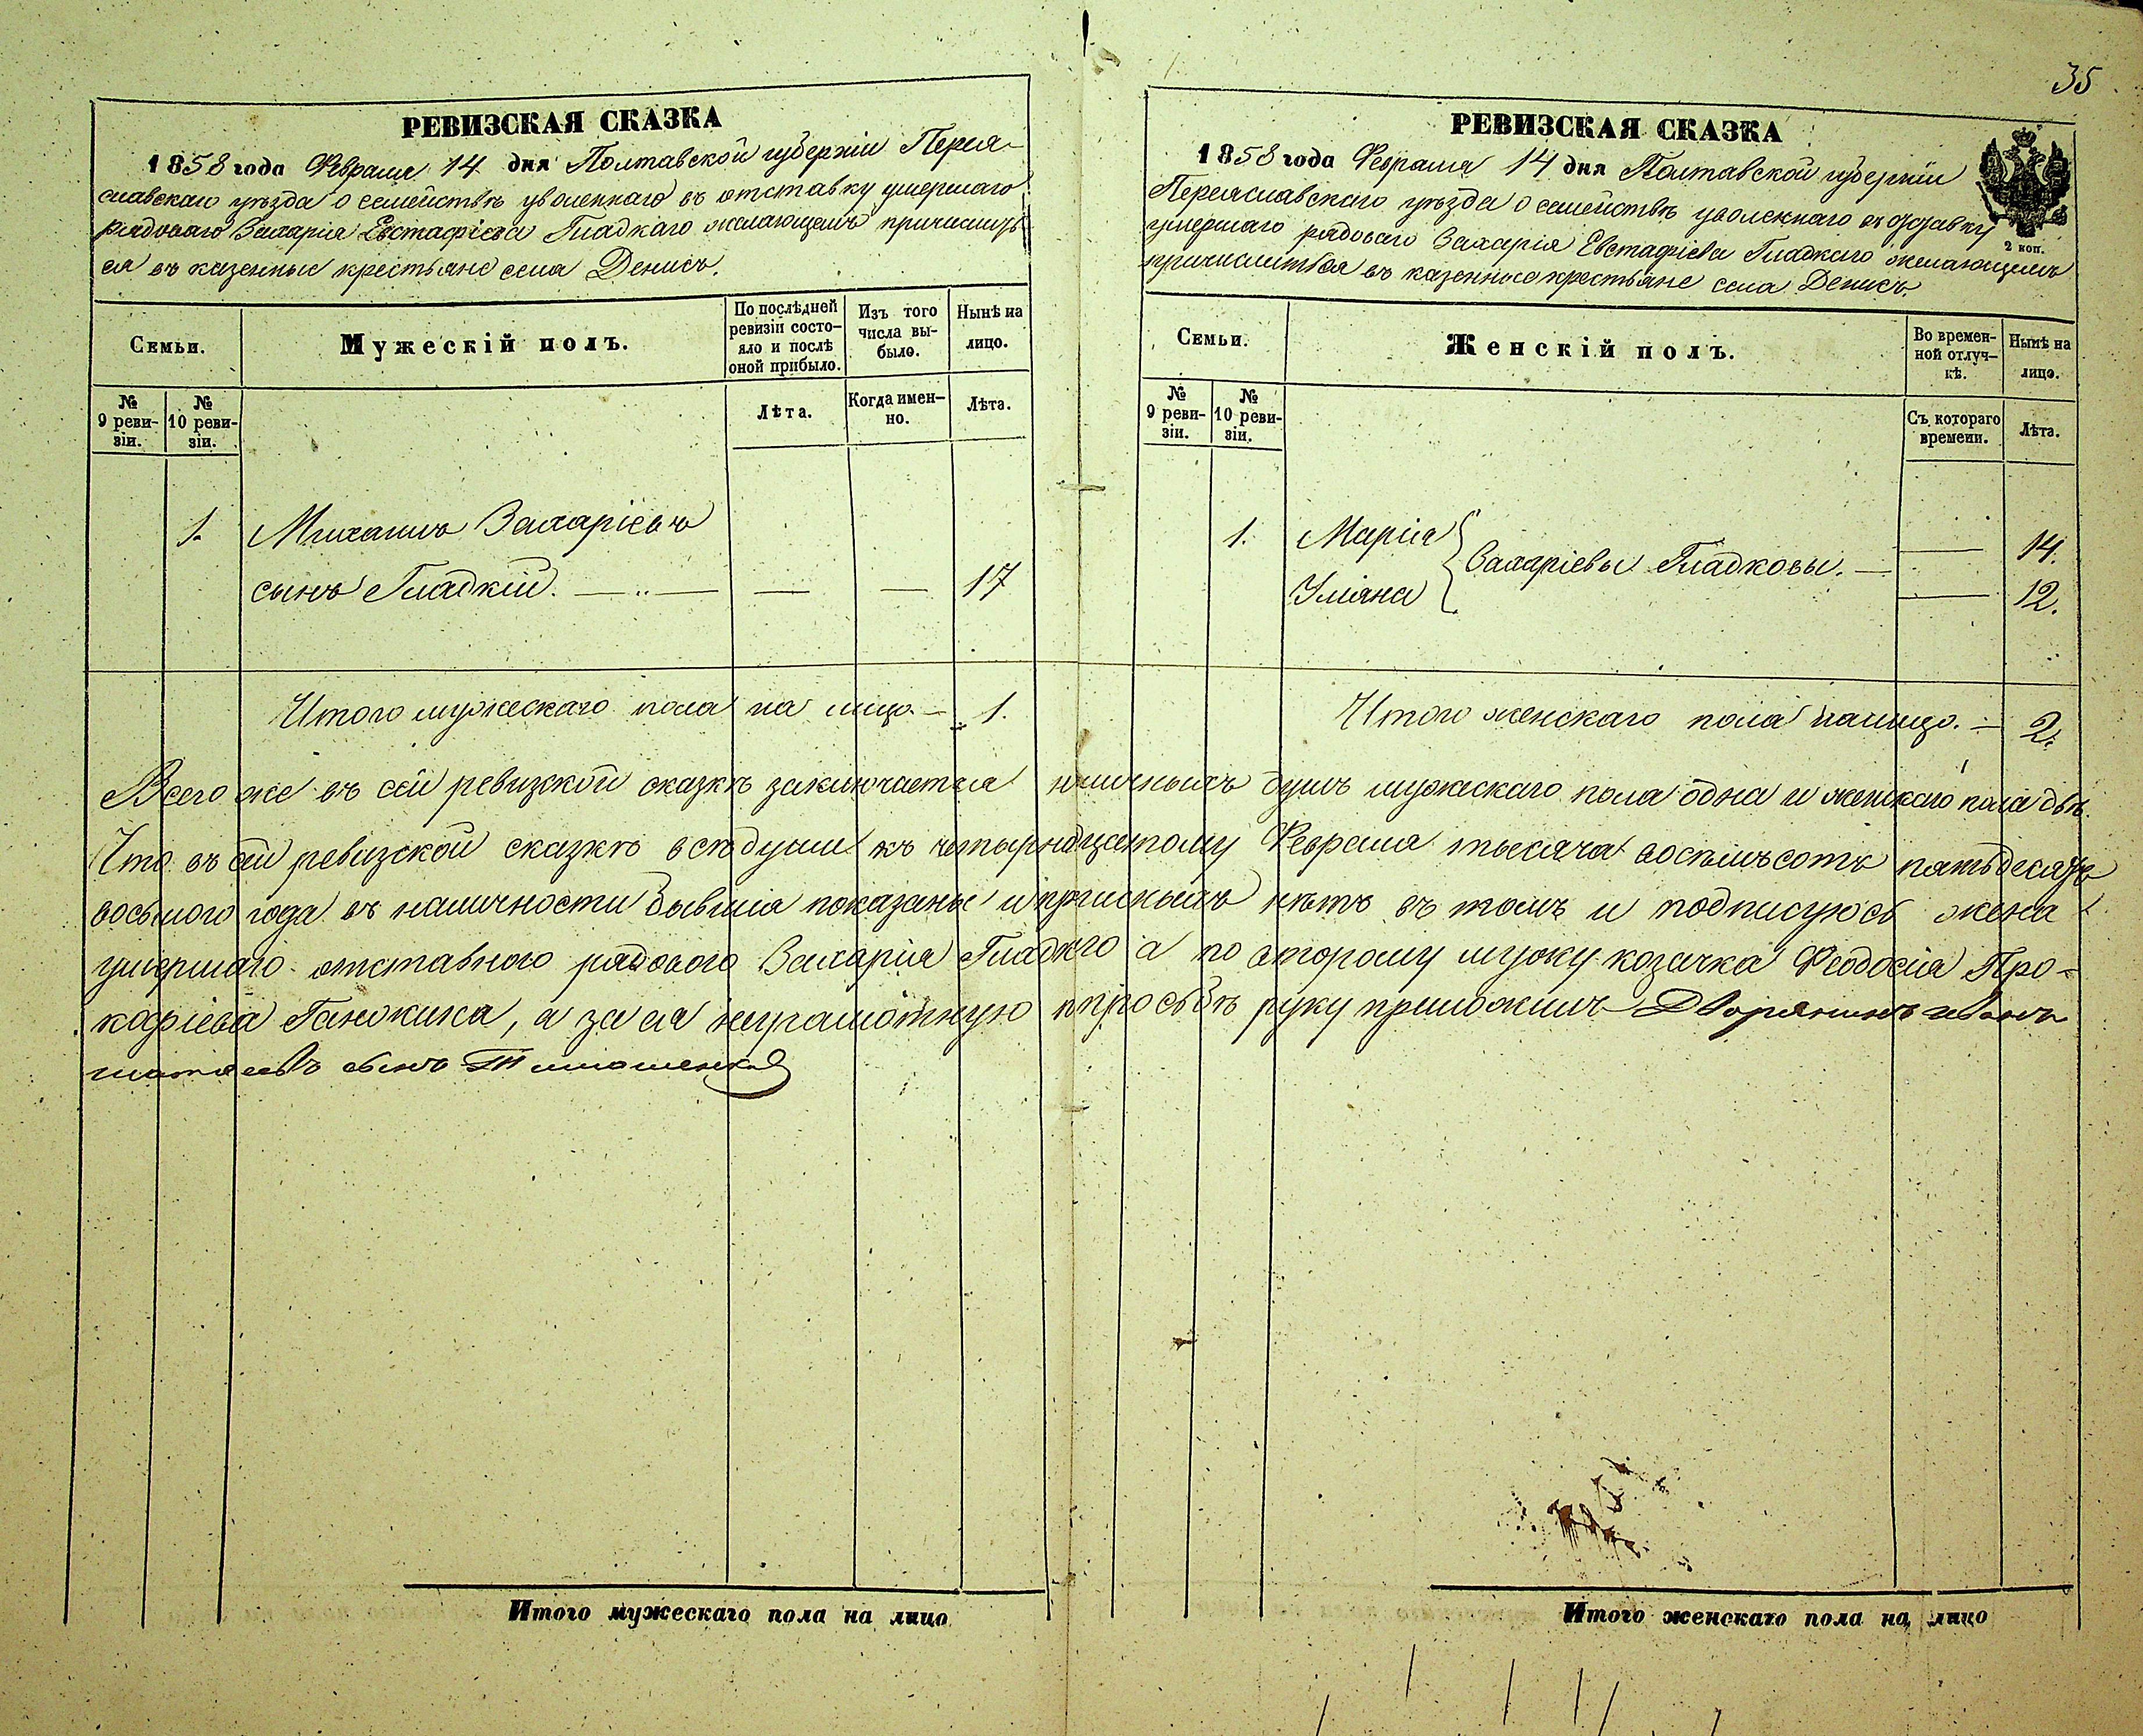 35
РЕВИЗСКАЯ СКАЗКА
1858 года Февраля 14 дня Полтавской губерніи Перея-
славскаго уѣзда о семействѣ уволеннаго въ отставку умершаго
рядоваго Захарія Евстафіева Гладкаго желающемъ причислить
ся въ казенные крестьяне села Денисъ.
Семьи.
Мужескій полъ.
По послѣдней ревизіи состо-яло и послѣ оной прибыло.
Изъ того числа вы-было.
Нынѣ на лицо.
№ 9 реви-зіи.
№ 10 реви-зіи.
Лѣта.
Когда имен-но.
Лѣта.
1. Михаилъ Захаріевъ
сынъ Гладкій. — „ — — — 17
Итого мужескаго пола на лицо — 1.
РЕВИЗСКАЯ СКАЗКА
1858 года Февраля 14 дня Полтавской губерніи
Переяславскаго уѣзда о семействѣ уволеннаго въ отставку
умершаго рядоваго Захарія Евстафіева Гладкаго желающемъ
причислиться въ казенные крестьяне села Денисъ.
2 коп.
Семьи.
Женскій полъ.
Во времен-ной отлуч-кѣ.
Нынѣ на лицо.
№ 9 реви-зіи.
№ 10 реви-зіи.
Съ котораго времени.
Лѣта.
1. Марія — 14.
Захаріевы Гладковы. —
Уліяна — 12.
Итого женскаго пола налицо. — 2.
Всего же въ сей ревизской сказкѣ заключается наличныхъ душъ мужескаго пола одна и женскаго пола двѣ.
Что въ сей ревизской сказкѣ всѣ души къ четырнадцатому Февраля тысяча восемьсотъ пятьдесятъ
восьмого года въ наличности бывшія показаны и прописныхъ нѣтъ въ томъ и подписуюсь жена
умершаго отставного рядового Захарія Гладкого а по второму мужу козачка Феодосія Про-
кофіева Ганжина, а за ея неграмотную по просьбѣ руку приложилъ Дворянинъ Иванъ
сынъ Тимошенко
Итого мужескаго пола на лицо
Итого женскаго пола на лицо